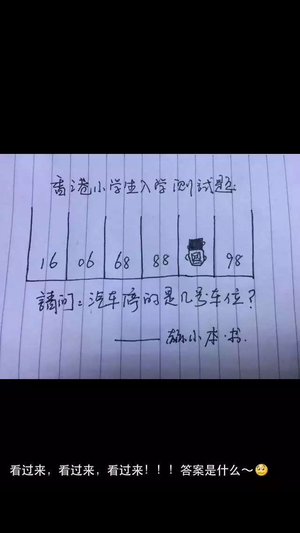 香港小学生入学测试题:
16 06 68 88 98
請问:汽车停的是几号车位?
看过来,看过来,看过来!!!答案是什么~🥺